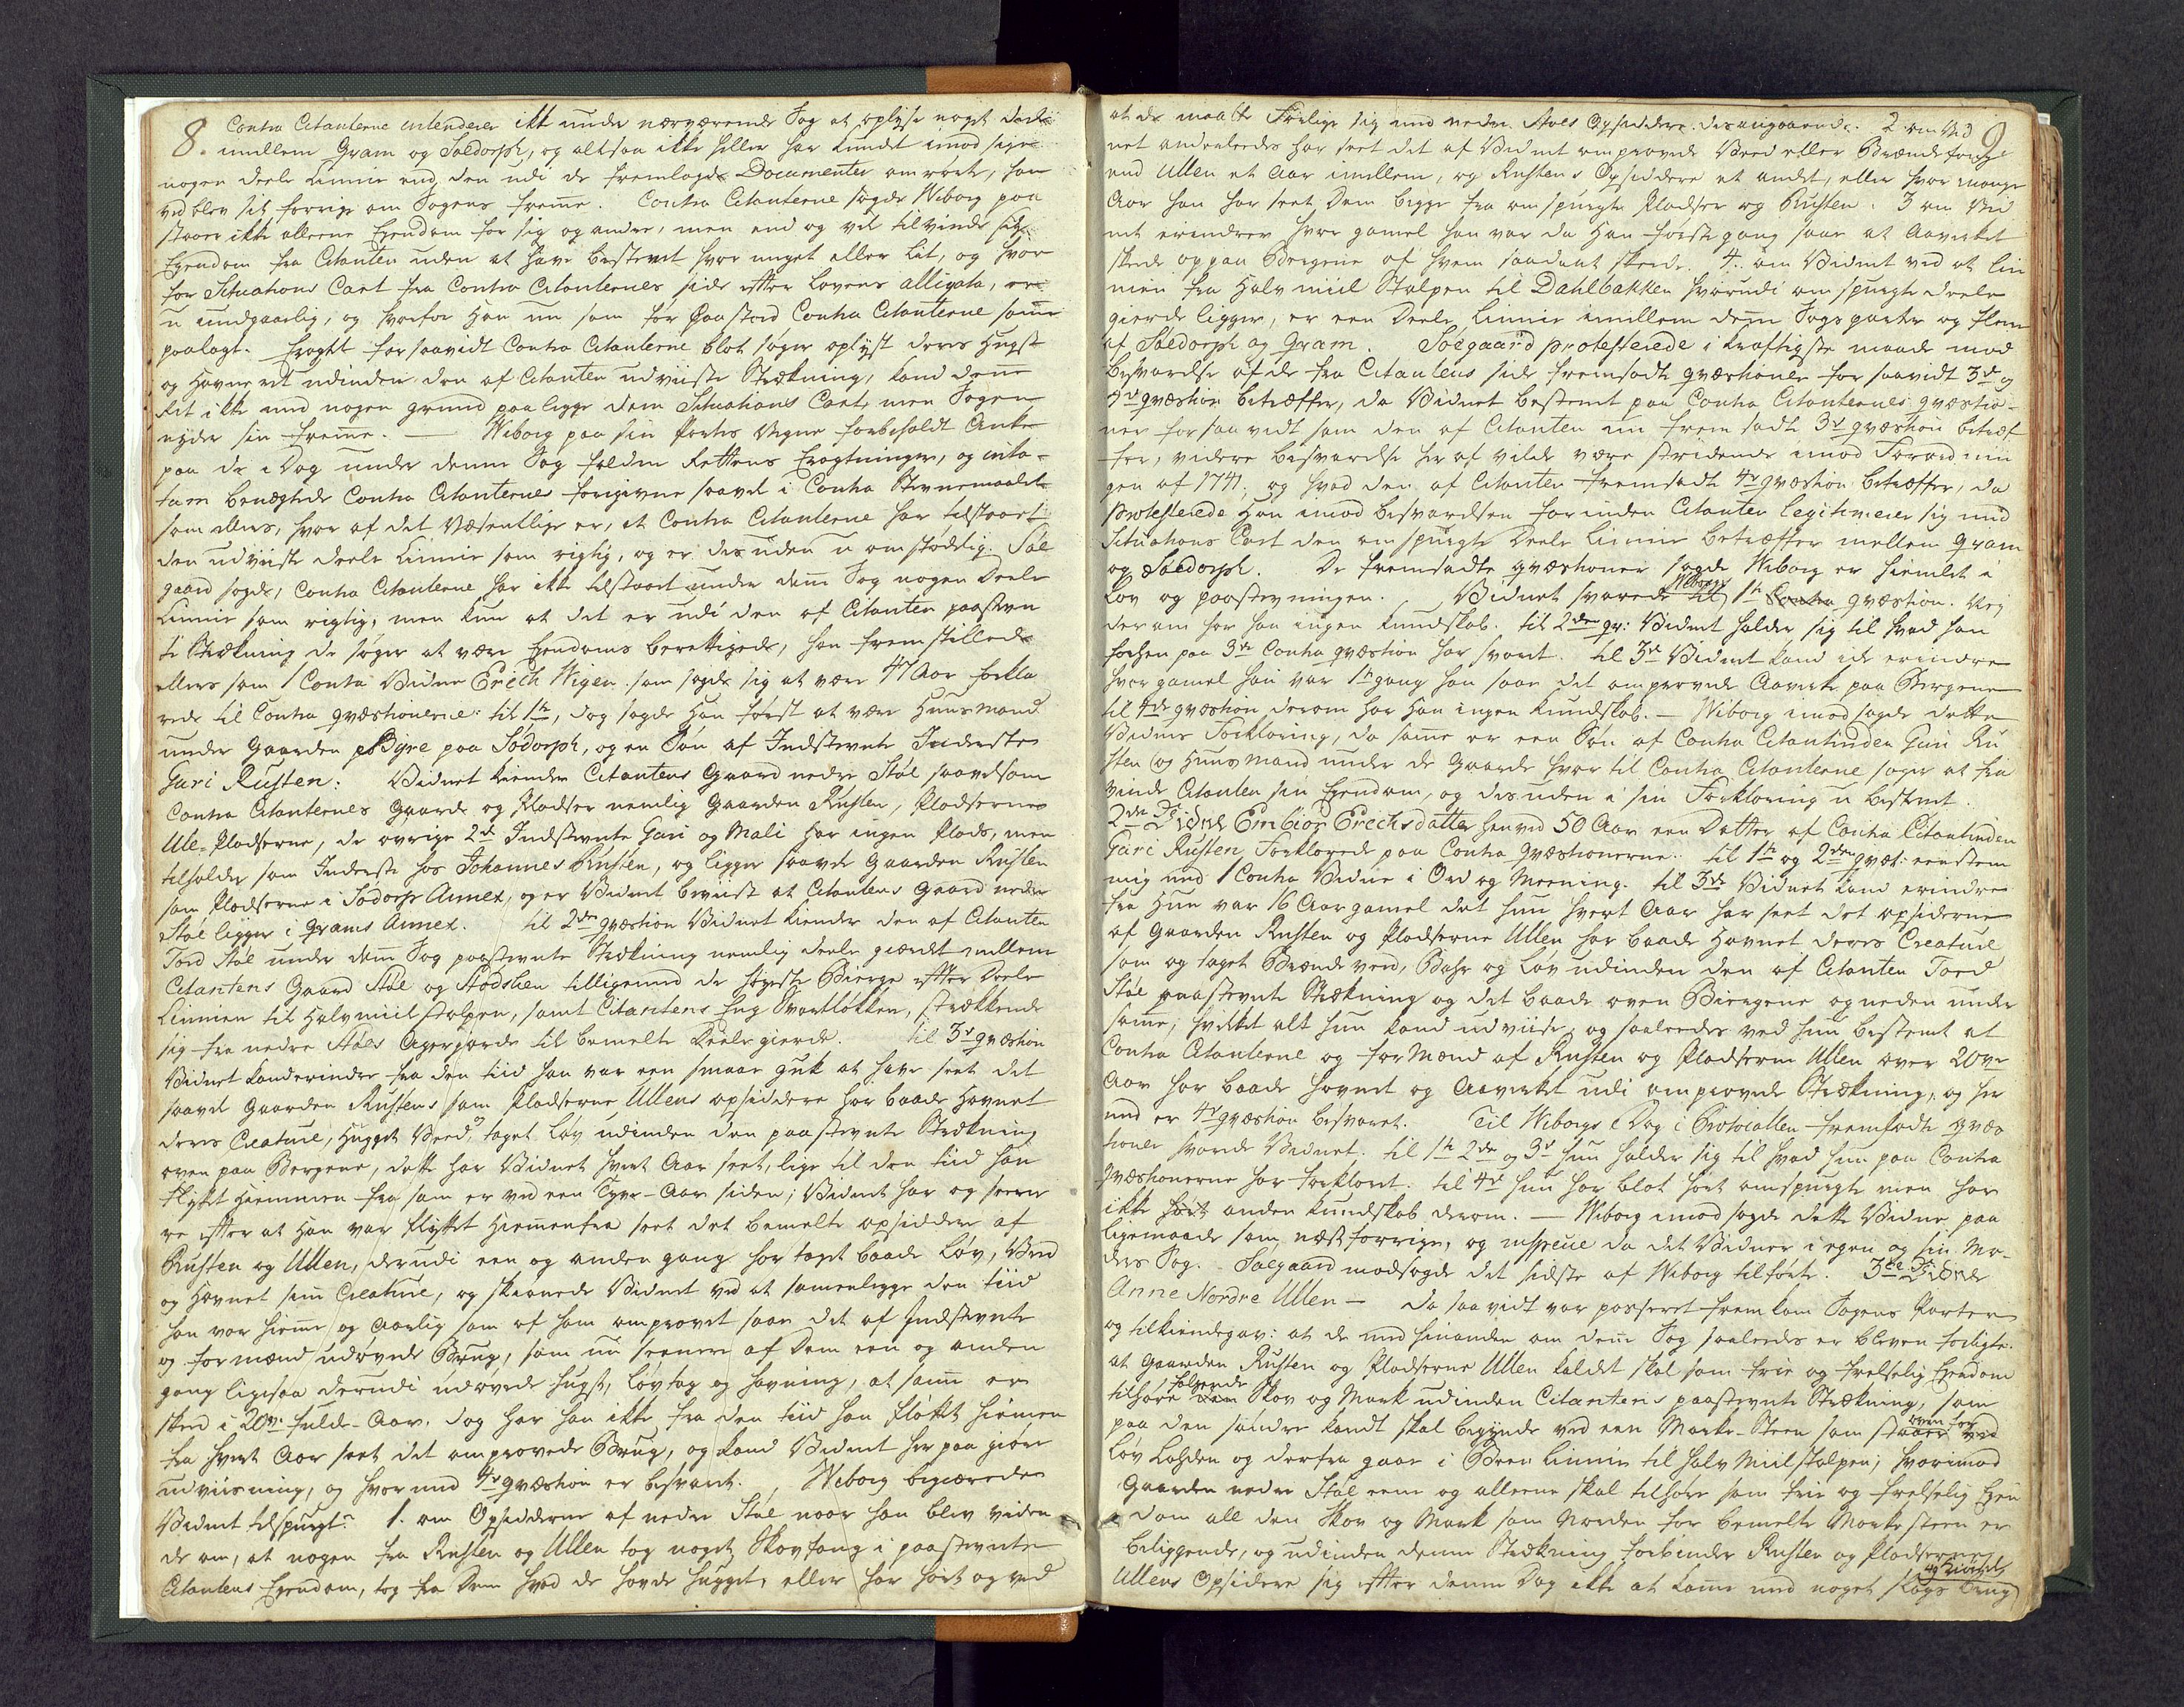 8.
Contra Citanterne intenderer ikke under nærværende Sag at oplyse noget Deele
imellem Gram og Soedorph, og altsaa ikke heller har kundet imod sige
nogen deele Linnie end den udi de fremlagde Documenter omrørte, han
ved blev sit forrige om Sagens fremme. Contra Citanterne sagde Wiborg paa
staaer ikke alleene Ejendom for sig og andre, men end og vil tilvinde sig
Ejendom fra Citanten uden at have bestemt hvor meget eller lit, og hvor
for Situations Cart fra Contra Citanternes side efter Lovens alligata, er
u undgaaelig, og hvorfor han nu som før paastod Contra Citanterne samme
paalagt. Eragtet forsaavidt Contra Citanterne blot søger oplyst deres Hugst
og Havne ret udinden den af Citanten udviiste Strækning, kand denne
Ret ikke med nogen grund paa legge dem Situations Cart, men Sagen
nyder sin fremme. — Wiborg paa sin Parts Vegne forbeholdt Anke
paa de i Dag under denne Sag faldne Rettens Eragtninger, og into-
tum benægtede Contra Citanternes foregivne saavel i Contra Stevnemaalet
som ellers, hvor af det Væsentlige er, at Contra Citanterne har tilstaaet
den udviiste deele Linnie som rigtig, og er desuden u omstødelig. Søe
gaard sagde, Contra Citanterne har ikke tilstaaet under denne Sag nogen Deele
Linnie som rigtig, men kun at det er udi den af Citanten paastevn
te Strækning de søger at være Ejendoms berettigede, han fremstillede
ellers som 1 Contra Vidne Erich Wigen som sagde sig at være 47 Aar forkla
rede til Contra qvæstionerne: til 1te, dog sagde han først at være Huusmand
under Gaarden Byre paa Sødorph, og en Søn af Indstevnte Inderste
Gari Rusten: Vidnet kiender Citantens Gaard nedre Støe saavelsom
Contra Citanternes Gaarde og Pladser nemlig Gaarden Rusten, Pladserne
Ule-Pladserne, de øvrige 2de Indstevnte Gari og Mali har ingen Plads, men
tilholder som Inderste hos Johannes Rusten, og ligger saavel Gaarden Rusten
som Pladserne i Sødorps Annex, og er Vidnet bevist at Citantens Gaard nedre
Støe ligger i Grams Annex. til 2den qvæstion Vidnet kiender den af Citanten
Tord Støe under denne Sag paastevnte Strækning nemlig deele giærdet mellem
Citantens Gaard Støe og Stodslien tilligemed de høyeste Bierge efter Deele
Linnien til Halvmiil stolpen, samt Citantens Eng Svartløkken, strækkende
sig fra nedre Støes Agerjorde til bemelte Deele gierde. til 3de qvæstion
Vidnet kand erindre fra den tiid han var een smaae gut at have seet det
saavel Gaarden Rustens som Pladserne Ullens opsiddere har baade Havnet
deres Creature, Hugget Veed, taget Løv udinden den paastevnte Strækning
oven paa Bergene, dette har Vidnet hvert Aar seet, lige til den tiid han
flyttet Hiemmen fra som er ved een Tyve-Aar siden; Vidnet har og seene
re efter at han var flyttet Hiemmenfra seet det bemelte opsiddere af
Rusten og Ullen, derudi een og anden gang har taget baade Løv, Veed
og Havnet sine Creature, og skiønnede Vidnet ved at samenlegge den tiid
han var hiemme og Aarlig som af ham omprovet saae det af Indstevnte
og formænd udøvede Brug, som nu seenere af dem een og anden
gang ligesaa derudi udøvede hugst, Løvtag og havning, at samme er
skeed i 20ve fulde-Aar. dog har han ikke fra den tiid han fløttet hiemmen
fra hvert Aar seet det omprovede Brug, og kand Vidnet herpaa giøre
udviisning, og hvormed 4de qvæstion er besvaret. Wiborg begiærede
Vidnet tilspurgt: 1. om Opsidderne af nedre Støe naar han blev viden
de om, at nogen fra Rusten og Ullen tog noget Skovfang i paastevnte
Citantens Ejendom, tog fra Dem hvad de havde hugget, eller har hørt og ved
9
at de maatte Forlige sig med nedre Støes Opsiddere desangaaende. 2 om Vid
net anderledes har seet det af Vidnet omprovede Veed eller Brænde fang
end Ullen et Aar imellem, og Rustens Opsiddere et andet, eller hvor mange
Aar han har seet dem begge fra omspurgte Pladser og Rusten. 3 om Vid
net erindrer hvor gamel han var da han første gang saae at Aavirket
skeede oppaa Bergene af hvem saadant skeede. 4. om Vidnet ved at Lin
nien fra Halv miil Stolpen til Dahlbakken hvorudi omspurgte deele
gierde ligger, er een Deele Linnie imellem denne Sags parter og fleere
af Søedorph og Gram. Søegaard protesterede i kraftigste maade mod
besvarelse af de fra Citantens side fremsadte qvæstioner for saavidt 3de og
4de qvæstion betræffer, da Vidnet bestemt paa Contra Citanternes qvæstio-
ner forsaavidt som den af Citanten nu fremsadte 3de qvæstion betræf
fer, videre besvarelse heraf vilde være stridende imod Forordnin
gen af 1741, og hvad den af Citanten fremsadte 4de qvæstion betræffer, da
protesterede han imod besvarelsen forinden Citanten legitimerer sig med
Situations Cart den omspurgte Deele Linnie betræffer mellem Gram
og Sødorph. De fremsadte qvæstioner sagde Wiborg er hiemlet i
Lov og paastevningen. Vidnet svarede til Wiborgs 1te Contra qvæstion. Nej
derom har han ingen kundskab. til 2den qv: Vidnet holder sig til hvad han
forhen paa 3de Contra qvæstion har svaret. til 3de Vidnet kand icke erindre
hvor gamel han var 1te gang han saae det omprovede Aavirke paa Bergene
til 4de qvæstion derom har han ingen kundskab. — Wiborg imodsagde dette
Vidnes Forklaring, da samme er een Søn af Contra Citantinden Gari Ru
sten og Huusmand under de Gaarde hvortil Contra Citanterne søger at fra
vinde Citanten sin Ejendom, og desuden i sin Forklaring u bestemt.
2det Vidne Embior Erichsdatter henved 50 Aar een Datter af Contra Citantinden
Gari Rusten, Forklarede paa Contra Qvæstionerne: til 1te og 2den qvæst: eenstem
mig med 1 Contra Vidne i Ord og Meening. til 3de Vidnet kand erindre
fra hun var 16 Aar gamel det hun hvert Aar har seet det opsidderne
af Gaarden Rusten og Pladserne Ullen har baade Havnet deres Creature
som og taget Brændeveed, Bahr og Løv udinden den af Citanten Tord
Støe paastevnte Strækning og det baade oven Biergene og neden under
samme, hvilket alt hun kand udviise, og saaledes ved hun bestemt at
Contra Citanterne og formænd af Rusten og Pladserne Ullen over 20ve
Aar har baade havnet og Aavirket udi omprovede Strækning, og her
med er 4de qvæstion besvaret. Til Wiborgs i Dag i Protocollen fremsadte qvæs
tioner svarede Vidnet. til 1te 2de og 3de hun holder sig til hvad hun paa Contra
Qvæstionerne har forklaret. til 4de hun har blot hørt omspurgte men har
ikke hørt anden kundskab derom. — Wiborg imodsagde dette Vidne paa
ligemaade som næstforrige, og in specie da det Vidner i egen og sin Mo-
ders Sag. Søegaard modsagde det sidste af Wiborg tilførte. 3die Vidne
Anne Nordre Ullen — Da saavidt var passeret fremkom Sagens Parter
og tilkiendegav: at de med hinanden om denne Sag saaledes er bleven forligte.
at Gaarden Rusten og Pladserne Ullen kaldet skal som frie og frelselig Ejendom
tilhøre følgende Skov og Mark udinden Citantens paastevnte Strækning, som
paa den søndre kandt skal begynde ved een Marke-Steen som staaer oven for
Løv Lahden og derfra gaae i Been Linnie til Halv Miil stolpen; hvorimod
Gaarden nedre Støe eene og alleene skal tilhøre som frie og frelselig Ejen
dom all den Skov og Mark som Norden for bemelte Markesteen er
beliggende, og udinden denne Strækning forbinder Rusten og Pladserne
Ullens Opsiddere sig efter denne Dag ikke at komme med noget Skogs Brug